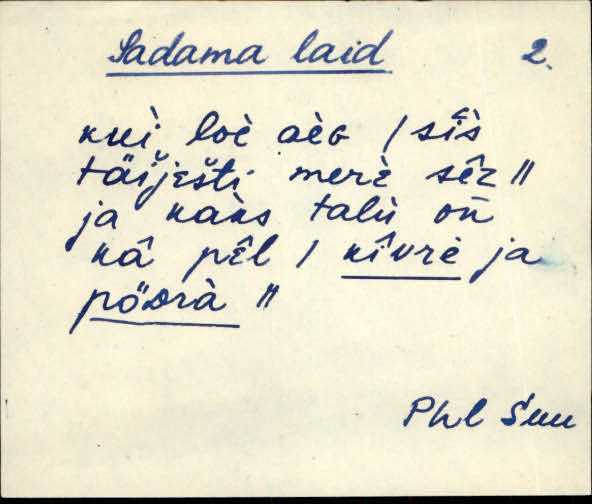 Sadama laid 2.
kui loè aèG / sîs
täiješti merè sêz //
ja kàks talù on̄
kâ pêl / kîvrè ja
pöDrà //
Phl Suu